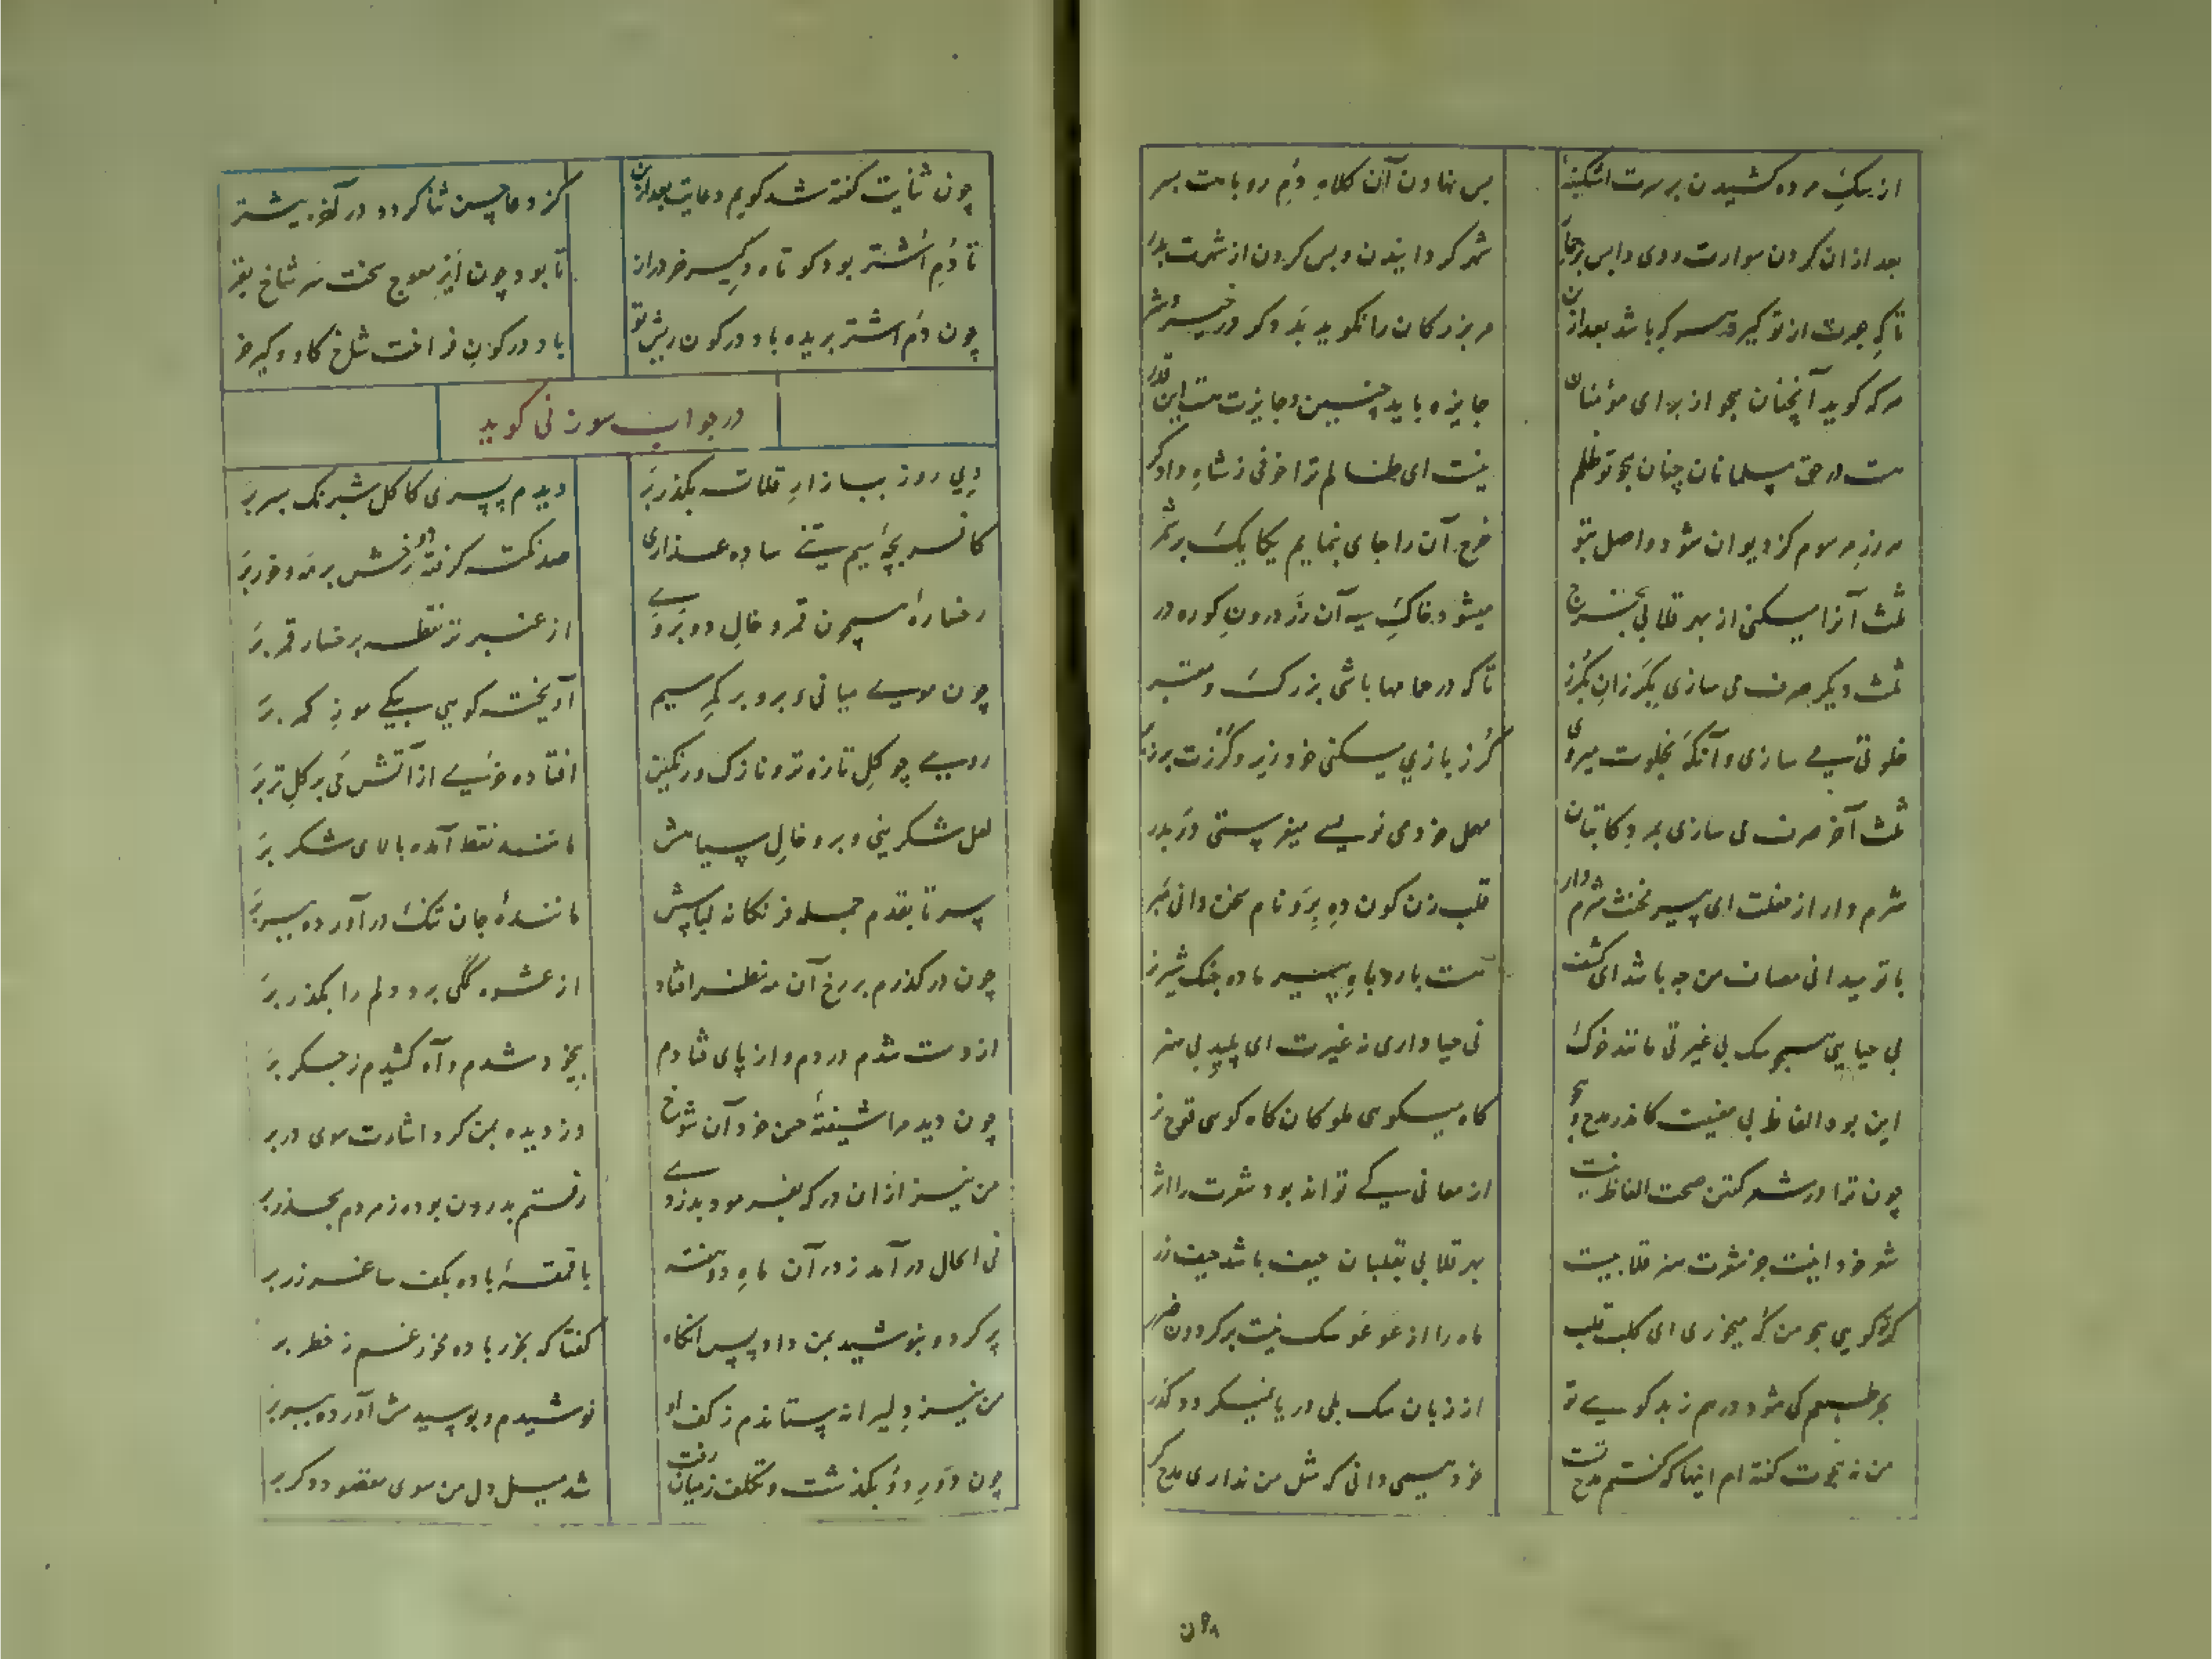 از سک مرده کشیدن بر سرت اشکنبهٔ
پس نهادن آن کلاه دُم روباهت بسر
بعد ازان کردن سوارت روی واپس بر
شهر کردانیدن و بس کردن از شهرت بدر
تا که عبرت از تو گیرد هر که باشد بعد ازین
مر بزرکان را نکوید بد دکر در
هر که کوید آنچنان هجو از برای مؤمنان
جایزه باید چنین و جایزت هست این قدر
هست در حق مسلمانان چنان هجو تو ظلم
نیست ای ظالم ترا خوفی ز شاه دادکر
هر زر مرسوم کز دیوان شود واصل بتو
خرج آن را جای بنمایم یکایک بر شمر
ثلث آنرا میکنی از بهر قلابی بخرج
میشود خاک سیه آن زر درون کوره در
ثلث دیکر صرف می سازی
تا که در حمامها باشی بزرک و معتبر
خلوتی می سازی و آنکه بخلوت میروی
کرز بازی میکنی خود زیر و کرزت بر زبر
ثلث آخر صرف می سازی بمرد کاتبان
مهمل خود می نویسی میفرستی در بدر
شرم دار از مفلت ای پیر مخنث شرم دار
قلب زن کون ده برو نام سخن دانی مبر
با تو میدانی مصاف من چه باشد ای
هست بار
بی حیایی همچو سک بی غیرتی مانند خوک
نی حیا داری نه غیرت ای پلید بی هنر
این بود الفاظ بی معنیت کاندر مدح و هجو
کاه میکوی ملوکان کاه کوی
چون ترا در شعر کفتن صحت الفاظ نیست
از معانی کی تواند بود شعرت را اثر
شعر خود
بهر قلابی بقلبان حیف باشد حیف زر
کر تو کویی هجو من
ماه را از عوعو سک نیست بر کردون ضرر
بحر طبعم کی شود درهم ز بد کویی تو
از زبان سک بلی دریا نمیکردد کذر
من نه هجوت کفته ام اینها که کفتم مدح تست
خود همی دانی که مثل من نداری مدح کر
چون ثنایت کفته شد کویم دعایت بعد ازین
کز دعا چسن ثنا کردد در آخر بیشتر
تا دُم اشتر بود کوتاه و کیر خر دراز
تا بود چون ایر معوج سخت سر شاخ بقر
چون دُم اشتر بریده باد در کون ریش تو
باد در کون فراخت شاخ کاو و کیر خر
در جواب سوزنی کوید
دی روز ببازار قلمات بکذر بر
دیدم پسری کاکل شبرنک بسر بر
کافر بچهٔ سیم تنی ساده عذاری
صد نکته کرفته رخش بر مه و خور بر
رخساره همچون قمر و خال دو بر وی
از عنبر تر نقطه برخسار قمر بر
چون موی میانی و برو بر کمر سیم
آویخته کویی بیکی موی کمر بر
رویی چو کل تازه تر و نازک و رنکین
افتاده خویی از آتش می بر کل تر بر
لعل شکرینی و برو خال سیاهش
مانند نقط آمده بالای شکر بر
سر تا بقدم جمله فرنکانه لباسش
مانندهٔ جان تنک در آورده ببر بر
چون در کذرم بر رخ آن مه نظر افتاد
از عشوه کلی برد دلم را بکذر بر
از دست شدم در دم و از پای فتادم
بیخود شدم و آه کشیدم ز جکر بر
چون دید مرا شیفتهٔ حسن خود آن شوخ
دزدیده بمن کرد اشارت سوی در بر
من نیز ازان در که بفرمود بدزدی
رفتم بدرون بوده ز مردم بحذر بر
فی الحال در آمد ز در آن ماه دو هفته
با قمقمهٔ باده بکف ساغر زر بر
پر کرد و بنوشید بمن داد پس آنکاه
کفتا که بخور باده مخور غم ز خطر بر
من نیز دلیرانه بستاندم ز کف او
نوشیدم و بوسیدمش آورده ببر بر
چون دور دو بکذشت و تکلف ز میان رفت
شد میل دل من سوی مقصود دکر بر